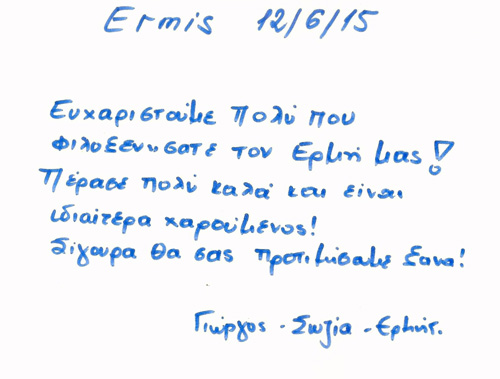 Ermis 12/6/15
Ευχαριστούμε πολύ που
φιλοξενήσατε τον Ερμή μας!
Πέρασε πολύ καλά και είναι
ιδιαίτερα χαρούμενος!
Σίγουρα θα σας προτιμήσουμε ξανά!
Γιώργος - Σωζία - Ερμής.